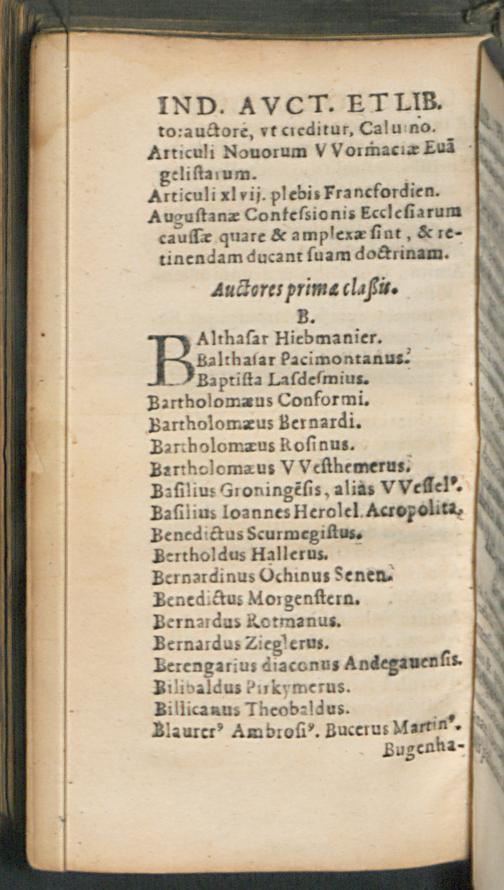 IND. AVCT. ET LIB.
to: auctore, vt creditur, Caluino.
Articuli Nouorum VVormaciæ Euã
gelistarum.
Articuli xlvij. plebis Francfordien.
Augustanæ Confessionis Ecclesiarum
caussæ quare & amplexæ sint, & re-
tinendam ducant suam doctrinam.
Auctores primæ classis.
B.
BAlthasar Hiebmanier.
Balthasar Pacimontanus.
Baptista Lasdesmius.
Bartholomæus Conformi.
Bartholomæus Bernardi.
Bartholomæus Rosinus.
Bartholomæus VVesthemerus.
Basilius Groningẽsis, aliàs VVesselꝰ.
Basilius Ioannes Herolel Acropolita.
Benedictus Scurmegistus.
Bertholdus Hallerus.
Bernardinus Ochinus Senen.
Benedictus Morgenstern.
Bernardus Rotmanus.
Bernardus Zieglerus.
Berengarius diaconus Andegauensis.
Bilibaldus Pirkymerus.
Billicanus Theobaldus.
Blaurerꝰ Ambrosiꝰ. Bucerus Martinꝰ.
Bugenha-